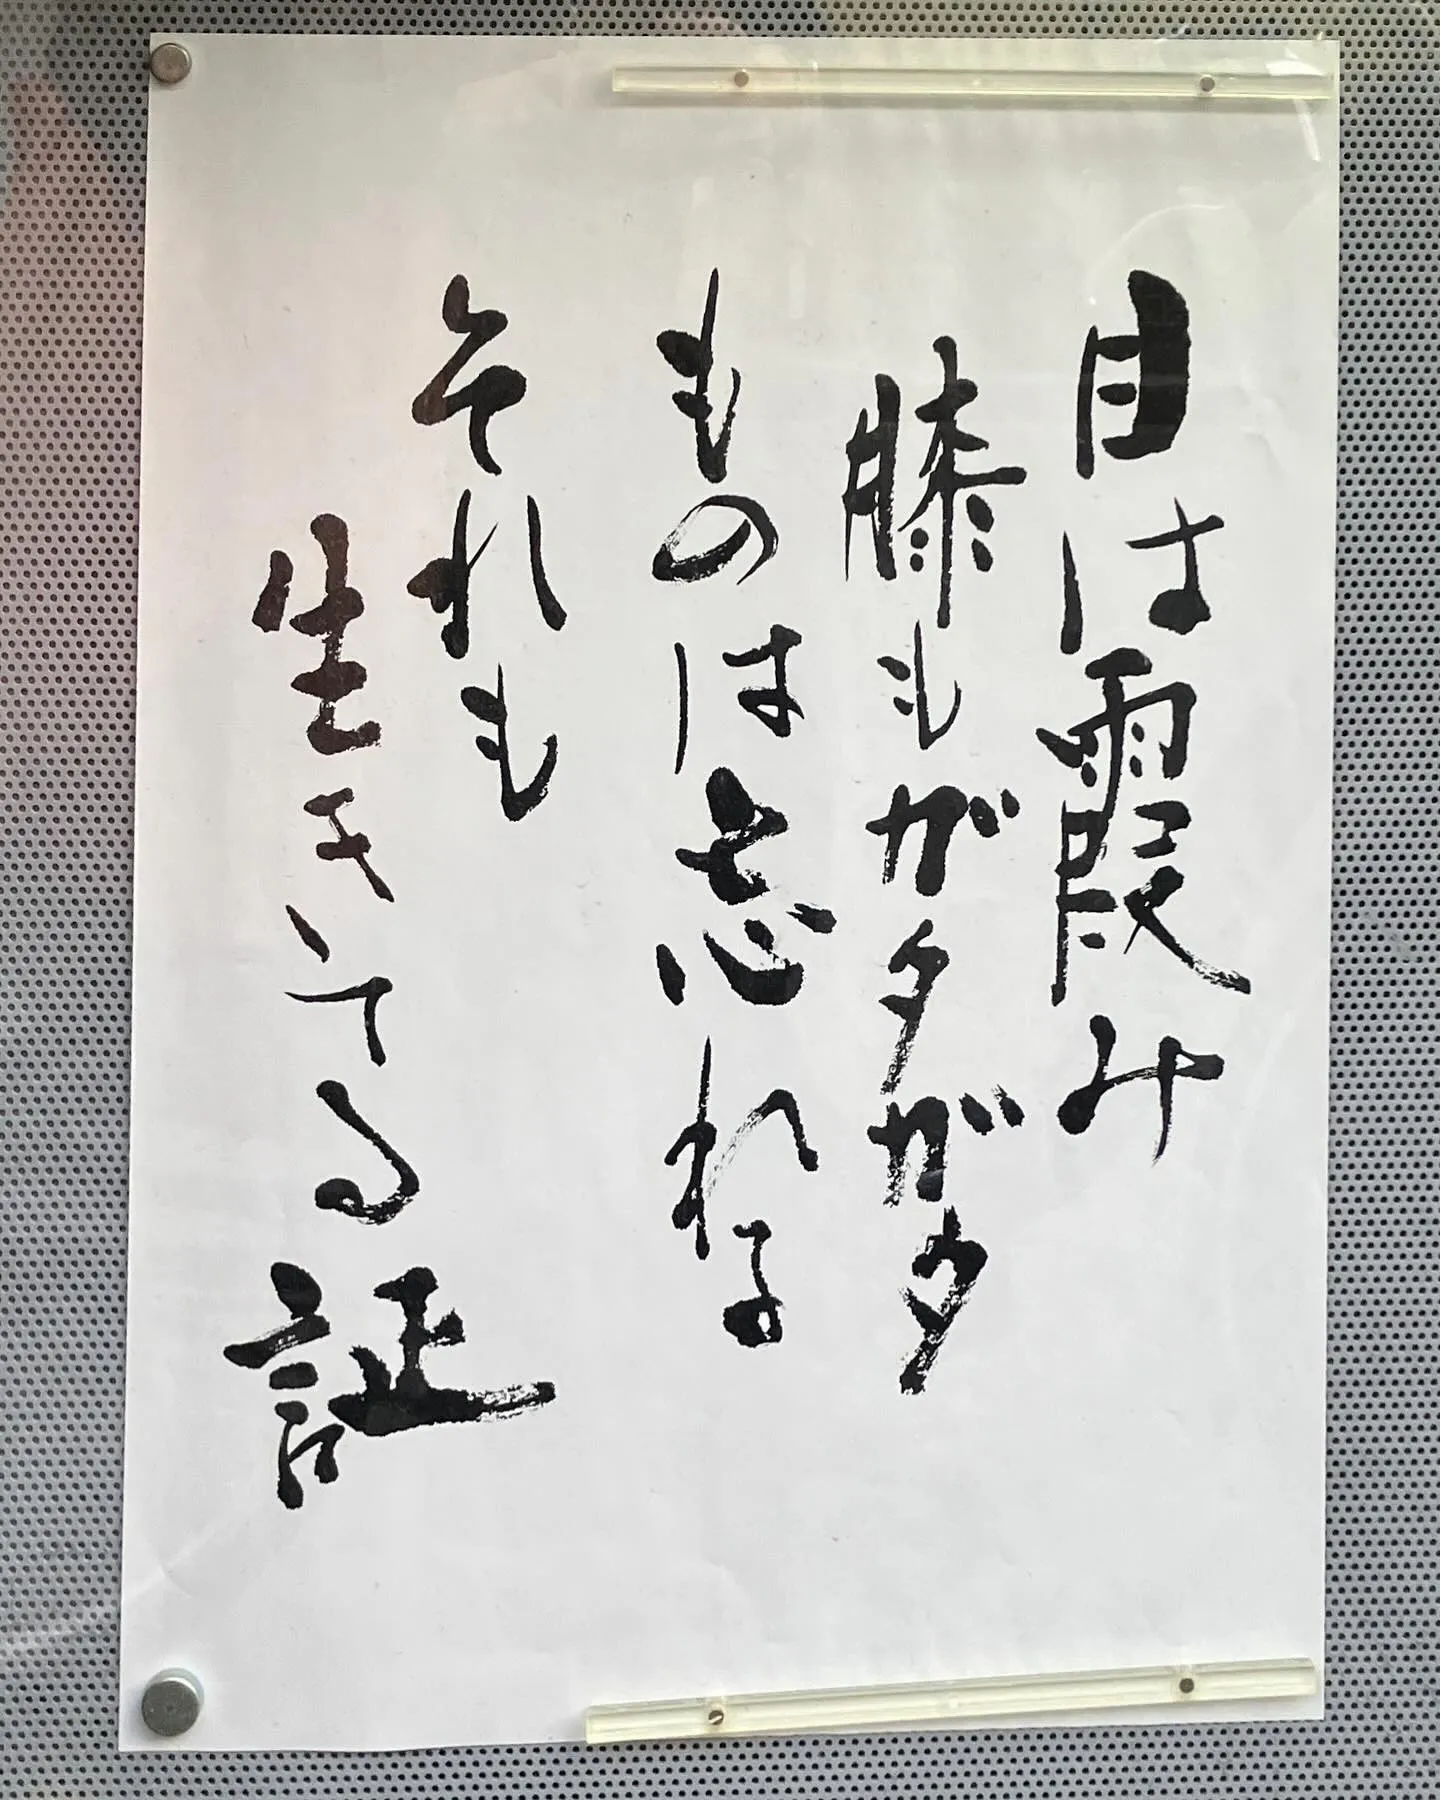 目は霞み
膝もガタガタ
ものは忘れる
それも
生きてる証